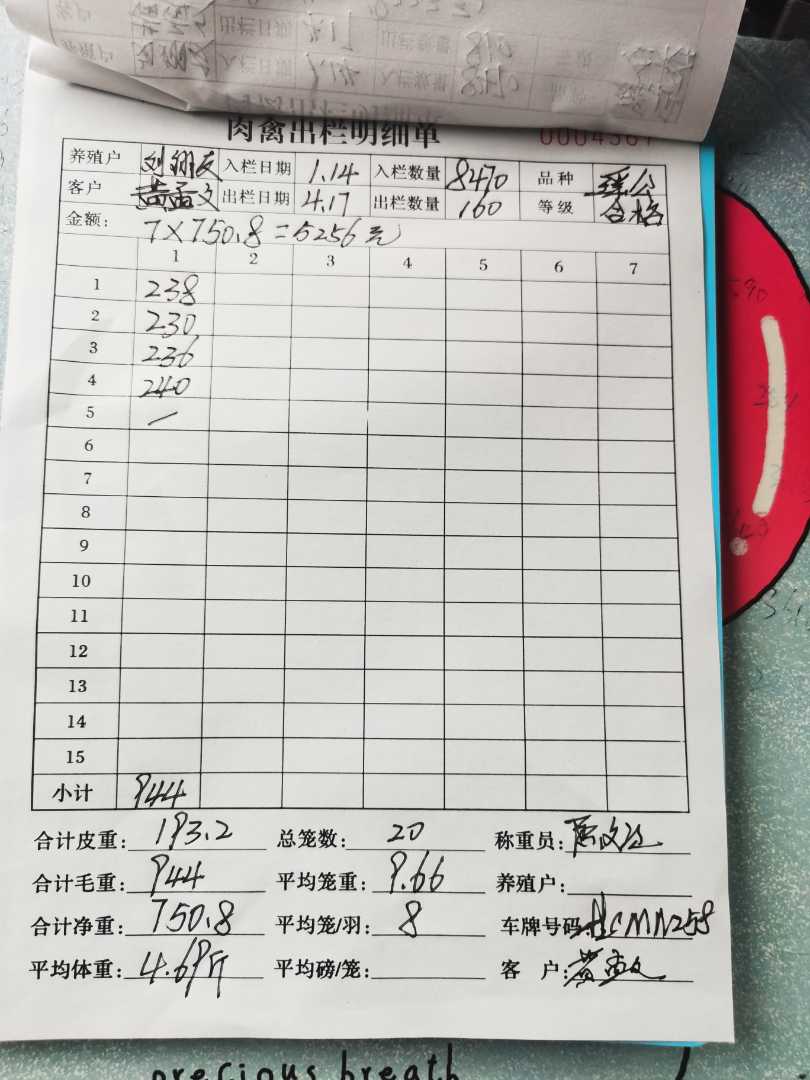 肉禽出栏明细单
养殖户 刘翔友 入栏日期 1.14 入栏数量 8470 品种
客户 黄孟文 出栏日期 4.17 出栏数量 160 等级 合格
金额: 7×750.8=5256元
1 2 3 4 5 6 7
1 238
2 230
3 236
4 240
5 /
6
7
8
9
10
11
12
13
14
15
小计 944
合计皮重: 193.2 总笼数: 20 称重员:
合计毛重: 944 平均笼重: 9.66 养殖户:
合计净重: 750.8 平均笼/羽: 8 车牌号码:
平均体重: 4.69斤 平均磅/笼: 客 户: 黄孟文
precious breath